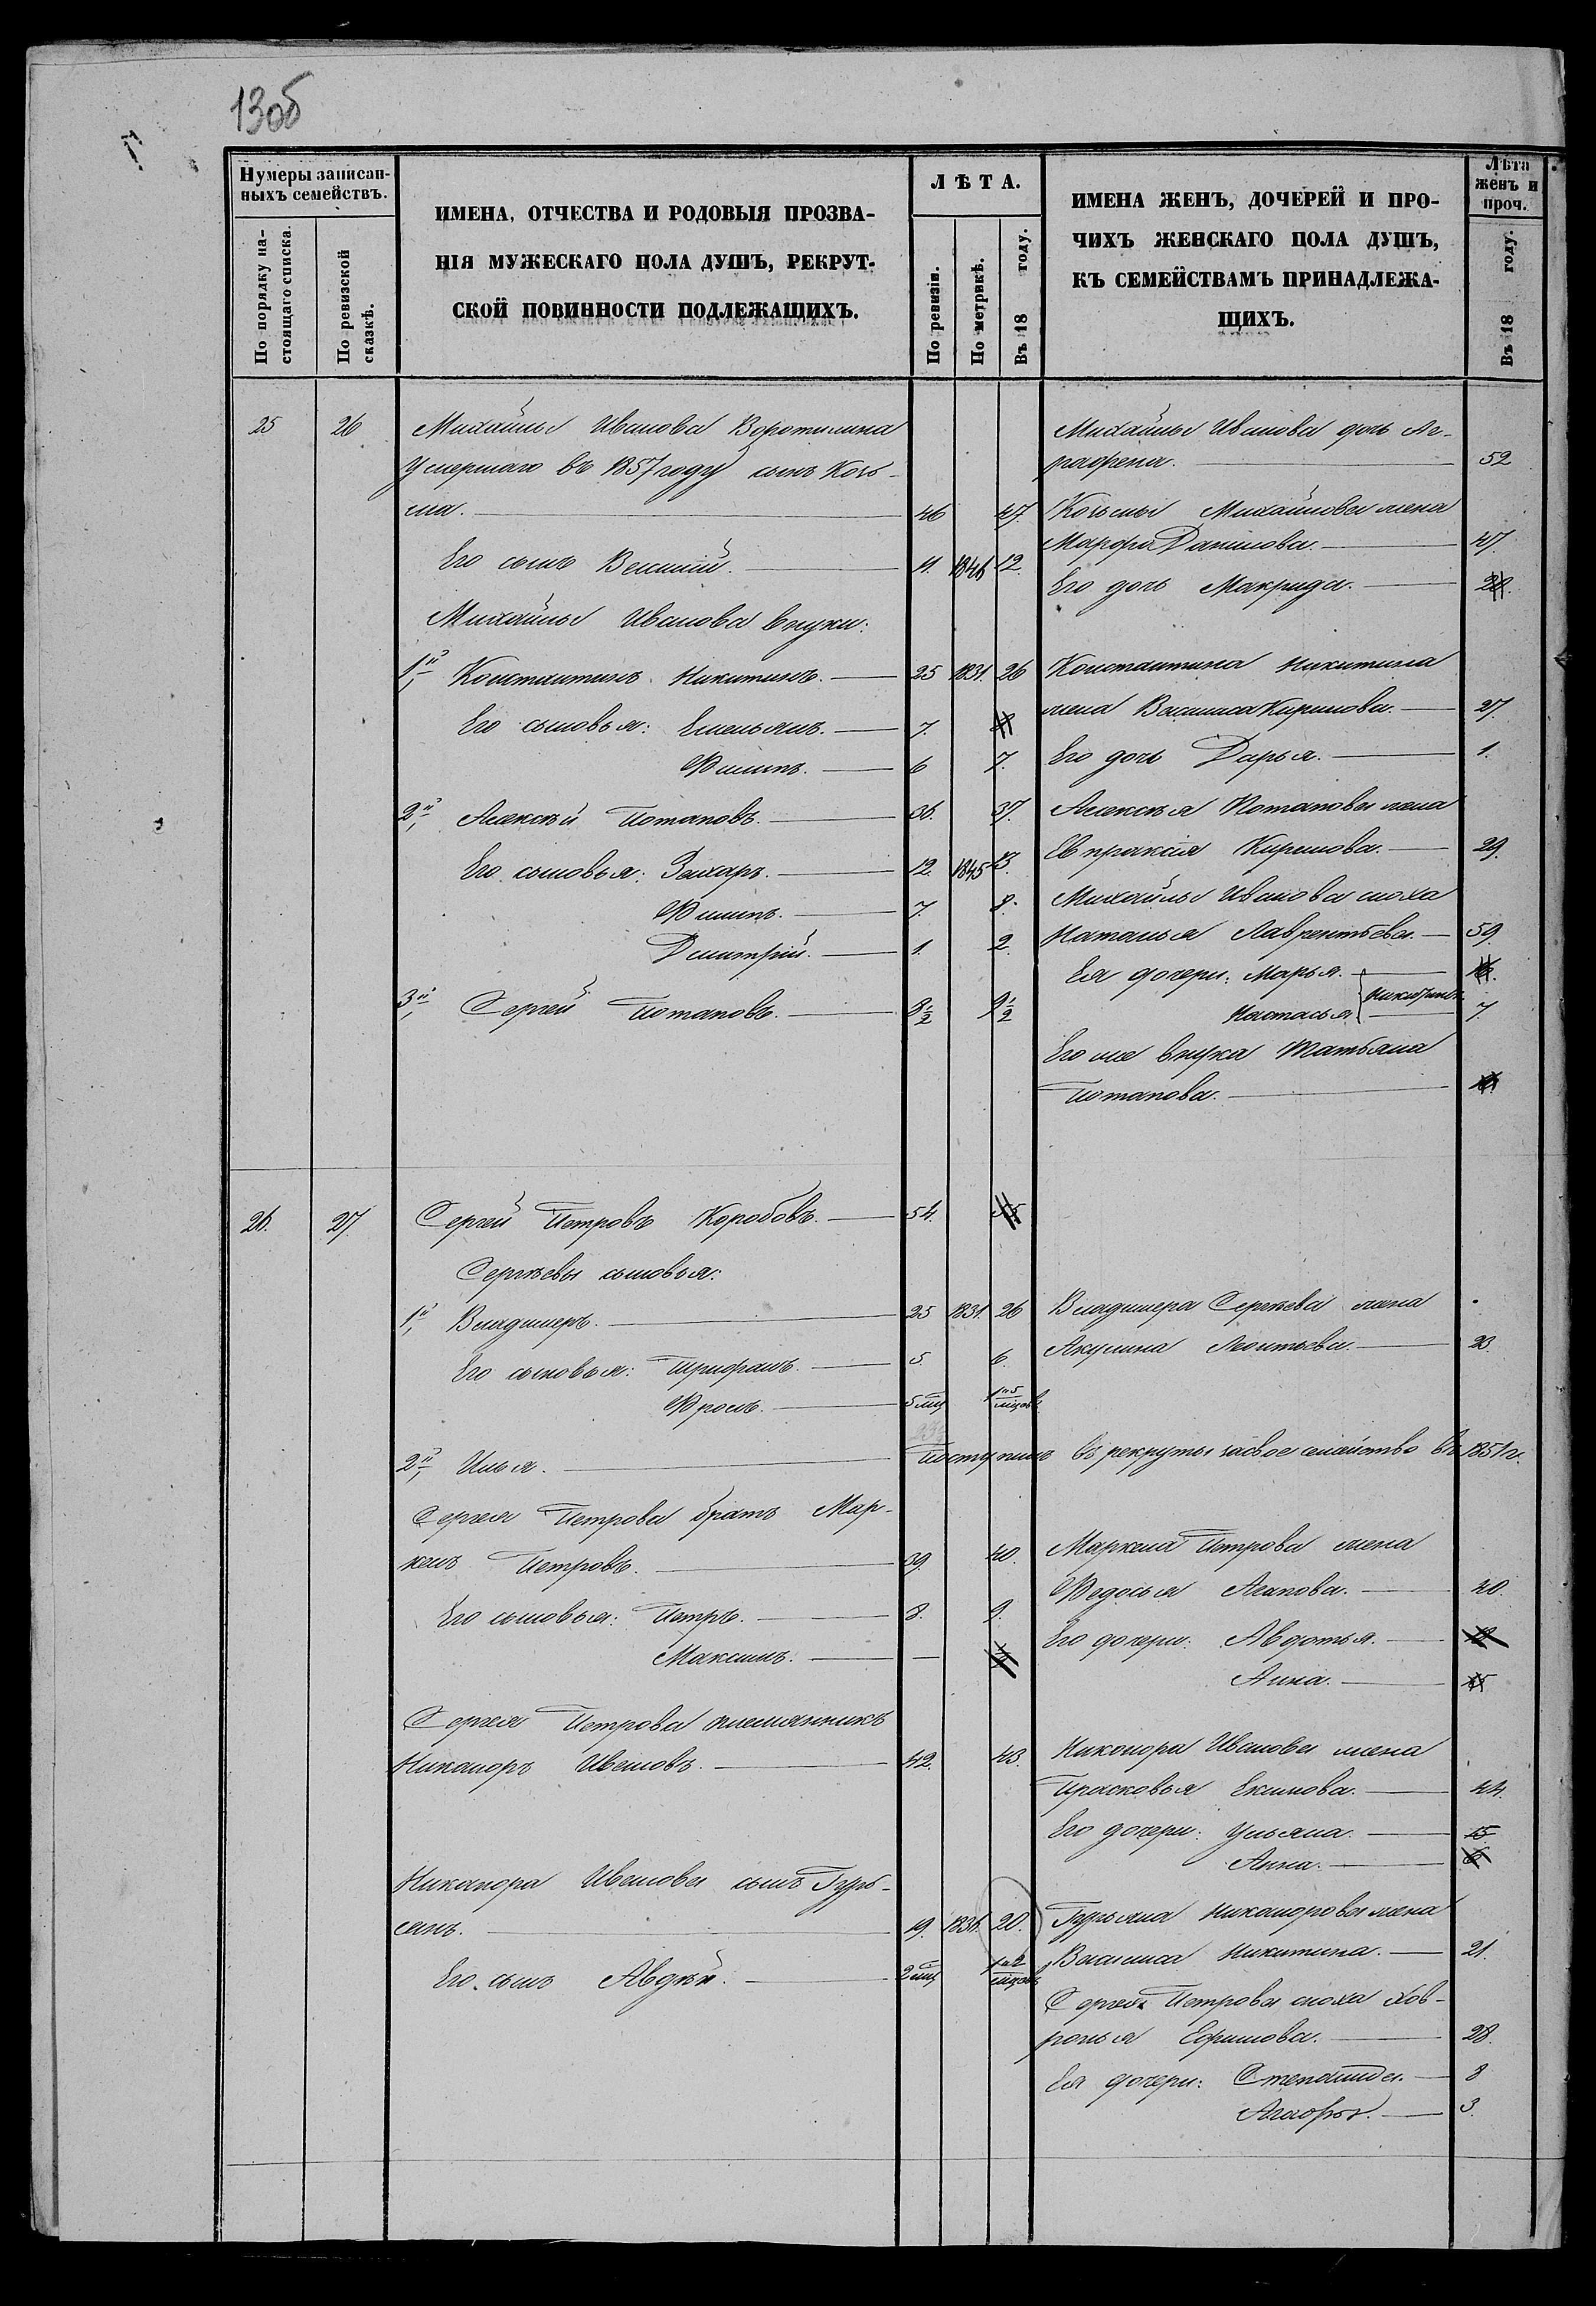 13об
Нумеры записан-
ныхъ семействъ.
По порядку на-
стоящаго списка.
По ревизской
сказкѣ.
ИМЕНА, ОТЧЕСТВА И РОДОВЫЯ ПРОЗВА-
НІЯ МУЖЕСКАГО ПОЛА ДУШЪ, РЕКРУТ-
СКОЙ ПОВИННОСТИ ПОДЛЕЖАЩИХЪ.
ЛѢТА.
По ревизіи.
По метрикѣ.
Въ 18 году.
ИМЕНА ЖЕНЪ, ДОЧЕРЕЙ И ПРО-
ЧИХЪ ЖЕНСКАГО ПОЛА ДУШЪ,
КЪ СЕМЕЙСТВАМЪ ПРИНАДЛЕЖА-
ЩИХЪ.
Лѣта
женъ и
проч.
Въ 18 году.
25 26 Михайлы Иванова Воротилина
умершаго въ 1857 году сынъ Козь-
ма. 46 47.
Его сынъ Василій. 11. 1846 12.
Михайлы Иванова внуки:
1й, Константинъ Никитинъ. 25 1831. 26
Его сыновья: Емельянъ. 7.
Филипъ. 6 7.
2й, Алексѣй Потаповъ. 36. 37.
Его сыновья: Захаръ. 12. 1845 13.
Филипъ. 7. 8.
Дмитрій. 1. 2.
3й, Сергей Потаповъ. 8½ 9½
Михайлы Иванова дочь Аг-
рафена. 52
Козьмы Михайлова жена
Марфа Данилова. 47.
Его дочь Макрида.
Константина Никитина
жена Василиса Кирилова. 27.
Его дочь Дарья. 1.
Алексѣя Потапова жена
Евпраксія Кирилова. 29.
Михайлы Иванова сноха
Наталья Лаврентьева. 59.
Ея дочери: Марья.
Настасья 7.
Его же внука Татьяна
Потапова.
26. 27. Сергей Петровъ Коробовъ. 54.
Сергѣевы сыновья:
1й, Владимеръ. 25 1831. 26
Его сыновья: Трифонъ. 5 6.
Фролъ. 5 мц 1 и 5 мцовъ
2й, Илья. Поступилъ въ рекруты за свое семейство въ 1851 г.
Сергея Петрова братъ Мар-
келъ Петровъ. 39. 40.
Его сыновья: Петръ. 8. 9.
Максимъ. —
Сергея Петрова племянникъ
Никаноръ Ивановъ. 42. 43.
Никанора Иванова сынъ Гурь-
янъ. 19. 1836. 20.
Его сынъ Авдѣй. 2 мц 1 и 2 мцовъ
Владимера Сергѣева жена
Акулина Леонтьева. 23.
Маркела Петрова жена
Федосья Агапова. 40.
Его дочери: Авдотья.
Анна.
Никонора Иванова жена
Прасковья Екимова. 44.
Его дочери: Ульяна. 15.
Анна.
Гурьяна Никанорова жена
Василиса Никитина. 21.
Сергея Петрова сноха Хов-
ронья Ефимова. 28.
Ея дочери: Степанида. 8
Агафья. 3.